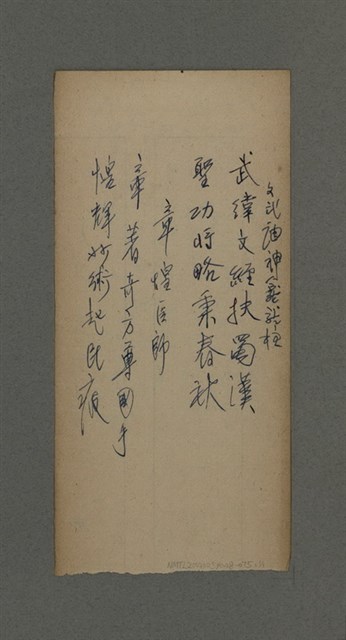 文武廟神龕龍柱
武緯文經扶蜀漢
聖功將略秉春秋
章煌醫師
章著奇方尊國手
煌輝妙術起民疲